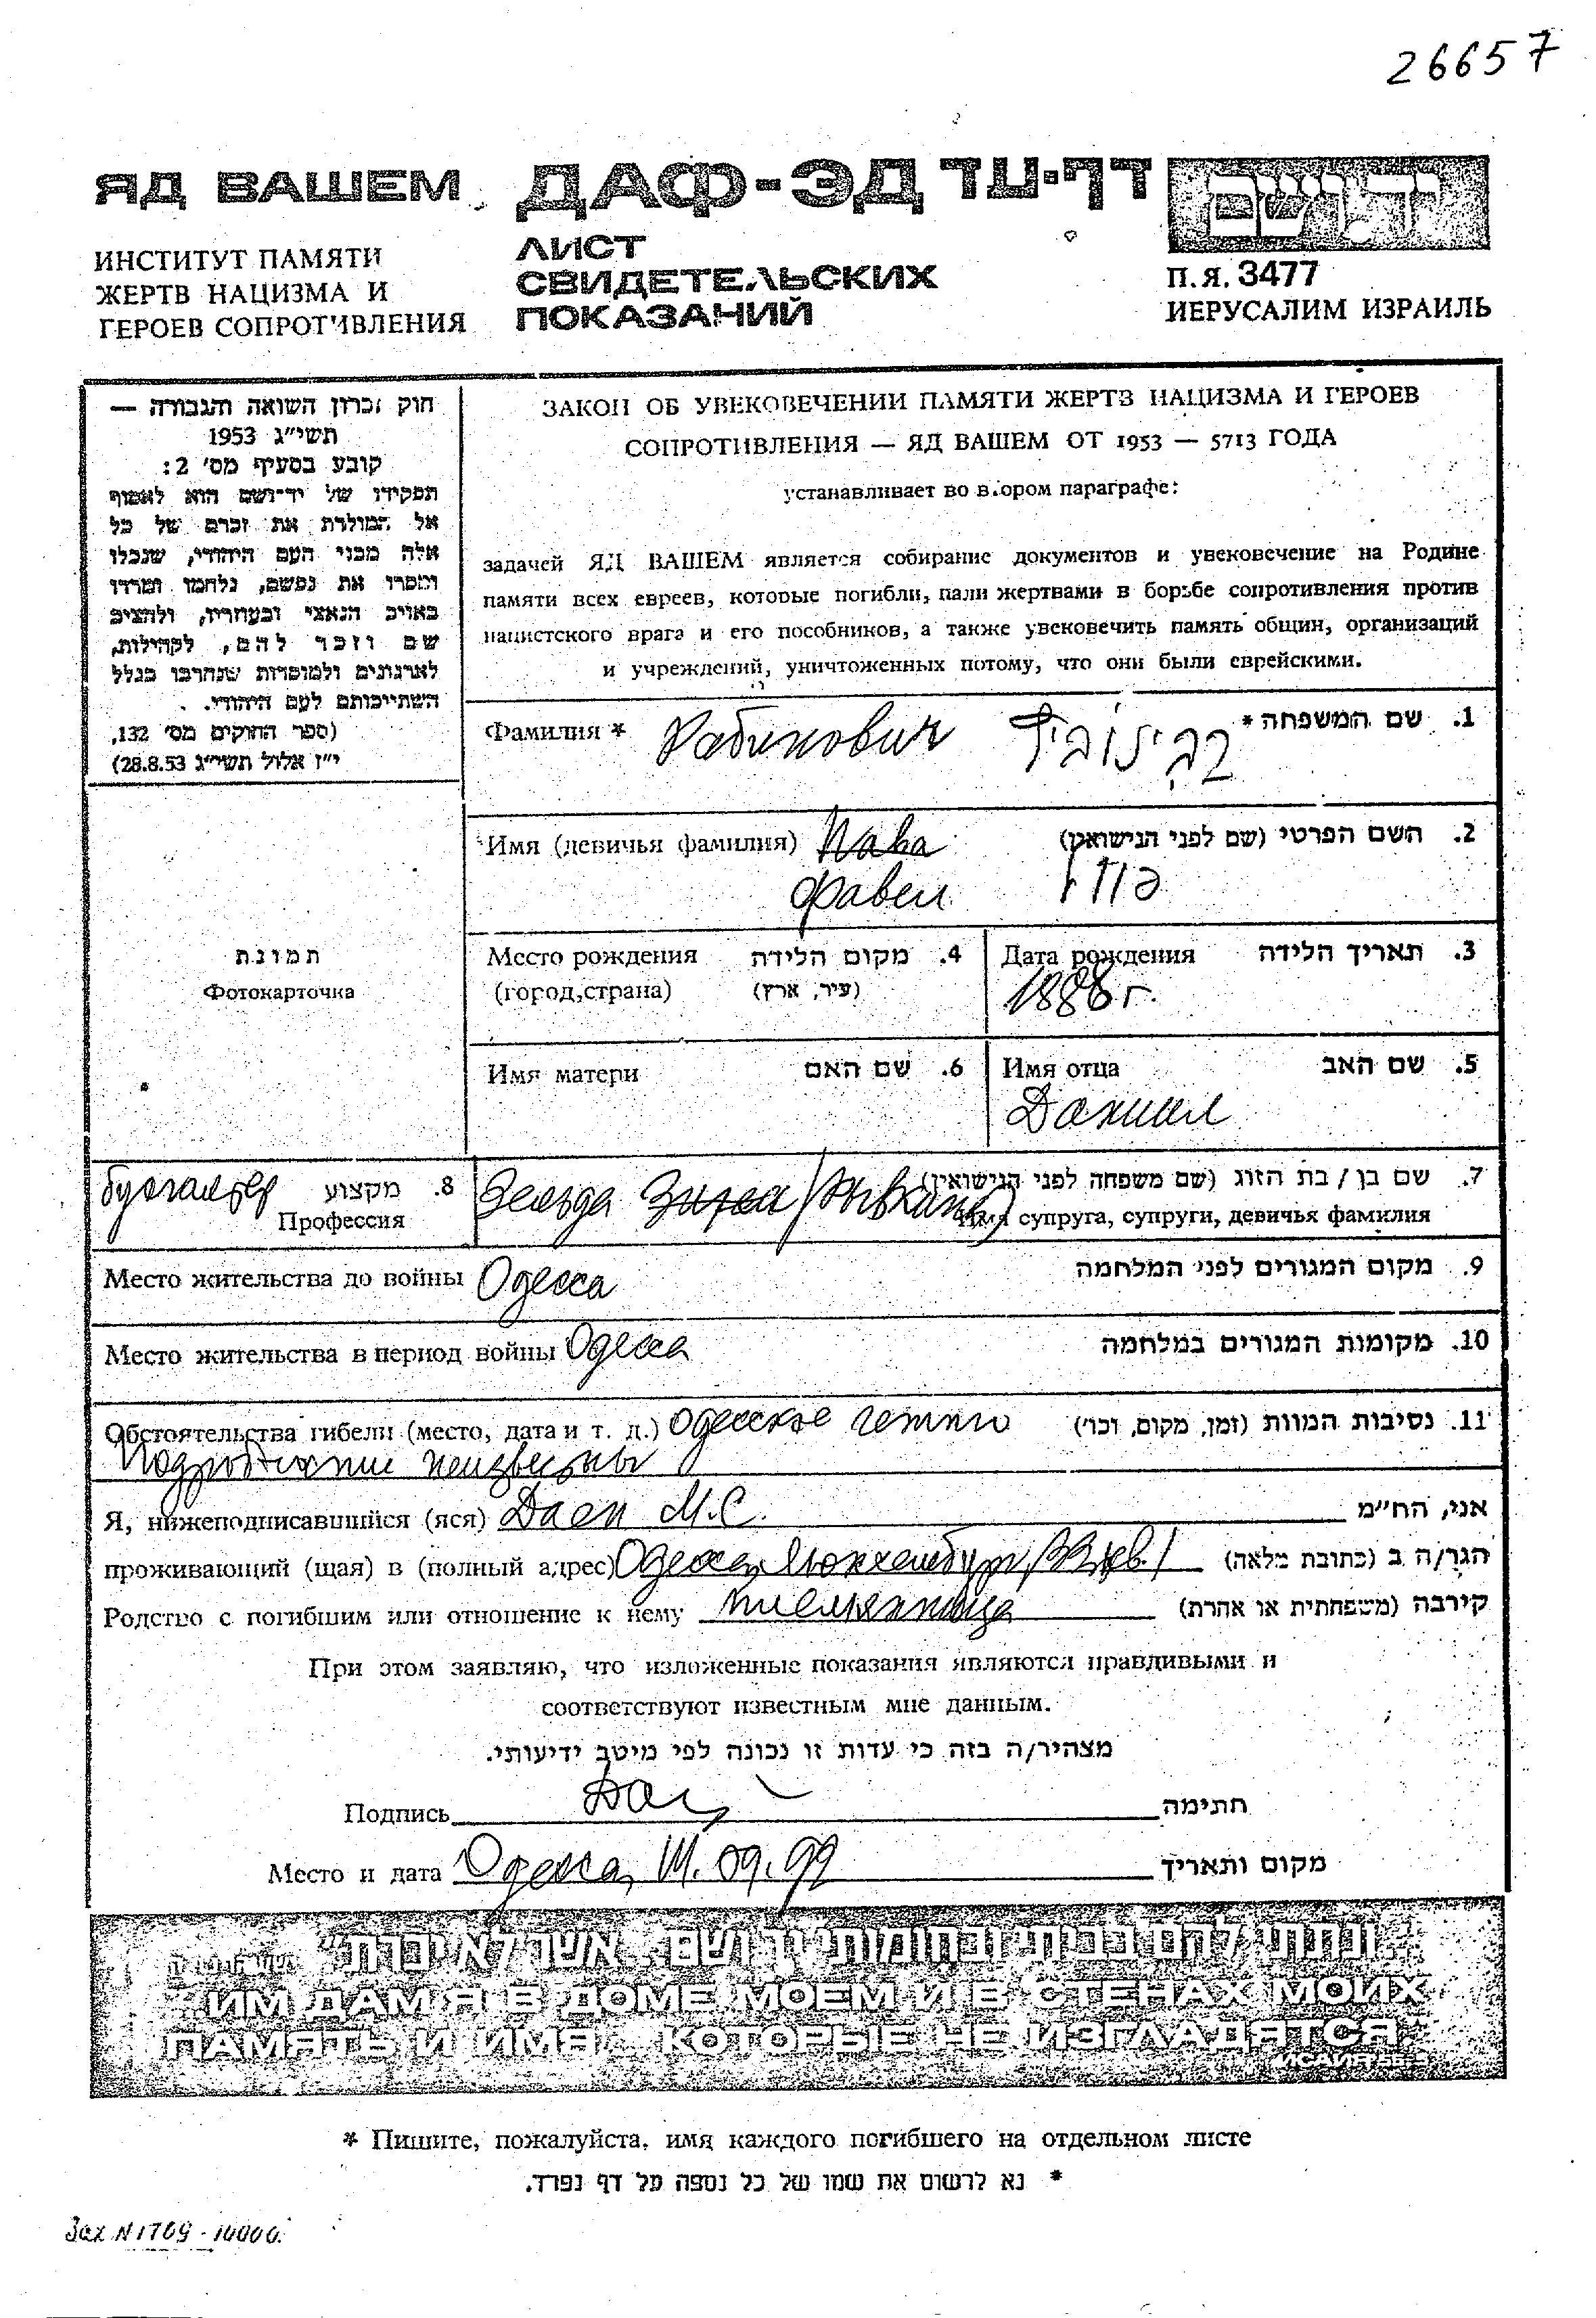 26657
ЯД ВАШЕМ ДАФ-ЭД דף-עד יד ושם
ИНСТИТУТ ПАМЯТИ
ЖЕРТВ НАЦИЗМА И
ГЕРОЕВ СОПРОТИВЛЕНИЯ
ЛИСТ
СВИДЕТЕЛЬСКИХ
ПОКАЗАНИЙ
П.Я. 3477
ИЕРУСАЛИМ ИЗРАИЛЬ
חוק זכרון השואה והגבורה —
תשי״ג 1953
קובע בסעיף מס׳ 2:
תפקידו של יד־ושם הוא לאסוף
אל המולדת את זכרם של כל
אלה מבני העם היהודי, שנפלו
ומסרו את נפשם, נלחמו ומרדו
באויב הנאצי ובעוזריו, ולהציב
שם וזכר להם, לקהילות,
לארגונים ולמוסדות שנחרבו בגלל
השתייכותם לעם היהודי.
(ספר החוקים מס׳ 132,
י״ז אלול תשי״ג 28.8.53)
ЗАКОН ОБ УВЕКОВЕЧЕНИИ ПАМЯТИ ЖЕРТВ НАЦИЗМА И ГЕРОЕВ
СОПРОТИВЛЕНИЯ — ЯД ВАШЕМ ОТ 1953 — 5713 ГОДА
устанавливает во втором параграфе:
задачей ЯД ВАШЕМ является собирание документов и увековечение на Родине
памяти всех евреев, которые погибли, пали жертвами в борьбе сопротивления против
нацистского врага и его пособников, а также увековечить память общин, организаций
и учреждений, уничтоженных потому, что они были еврейскими.
Фамилия * Рабинович רבינוביץ 1. שם המשפחה *
Имя (девичья фамилия) 2. השם הפרטי (שם לפני הנישואין)
Фавел
תמונת
Фотокарточка
Место рождения 4. מקום הלידה
(город,страна) (עיר, ארץ)
Дата рождения 3. תאריך הלידה
1888 г.
Имя матери 6. שם האם
Имя отца 5. שם האב
Даниил
бухгалтер 8. מקצוע
Профессия
Зельда 7. שם בן / בת הזוג (שם משפחה לפני הנישואין)
Имя супруга, супруги, девичья фамилия
Место жительства до войны Одесса 9. מקום המגורים לפני המלחמה
Место жительства в период войны Одесса 10. מקומות המגורים במלחמה
Обстоятельства гибели (место, дата и т. д.) одесское гетто 11. נסיבות המוות (זמן, מקום, וכו׳)
Подробности неизвестны
Я, нижеподписавшийся (яся) Даен М.С. אני, הח״מ
проживающий (щая) в (полный адрес) Одесса, הגר/ה ב (כתובת מלאה)
Родство с погибшим или отношение к нему племянница קירבה (משפחתית או אחרת)
При этом заявляю, что изложенные показания являются правдивыми и
соответствуют известным мне данным.
מצהיר/ה בזה כי עדות זו נכונה לפי מיטב ידיעותי.
Подпись חתימה
Место и дата Одесса, 09.99 מקום ותאריך
״ונתתי להם בביתי ובחומותי יד ושם... אשר לא יכרת״
„ИМ ДАМ Я В ДОМЕ МОЕМ И В СТЕНАХ МОИХ
ПАМЯТЬ И ИМЯ... КОТОРЫЕ НЕ ИЗГЛАДЯТСЯ"
* Пишите, пожалуйста, имя каждого погибшего на отдельном листе
* נא לרשום את שמו של כל נספה על דף נפרד.
Зак N 1769 - 10000.